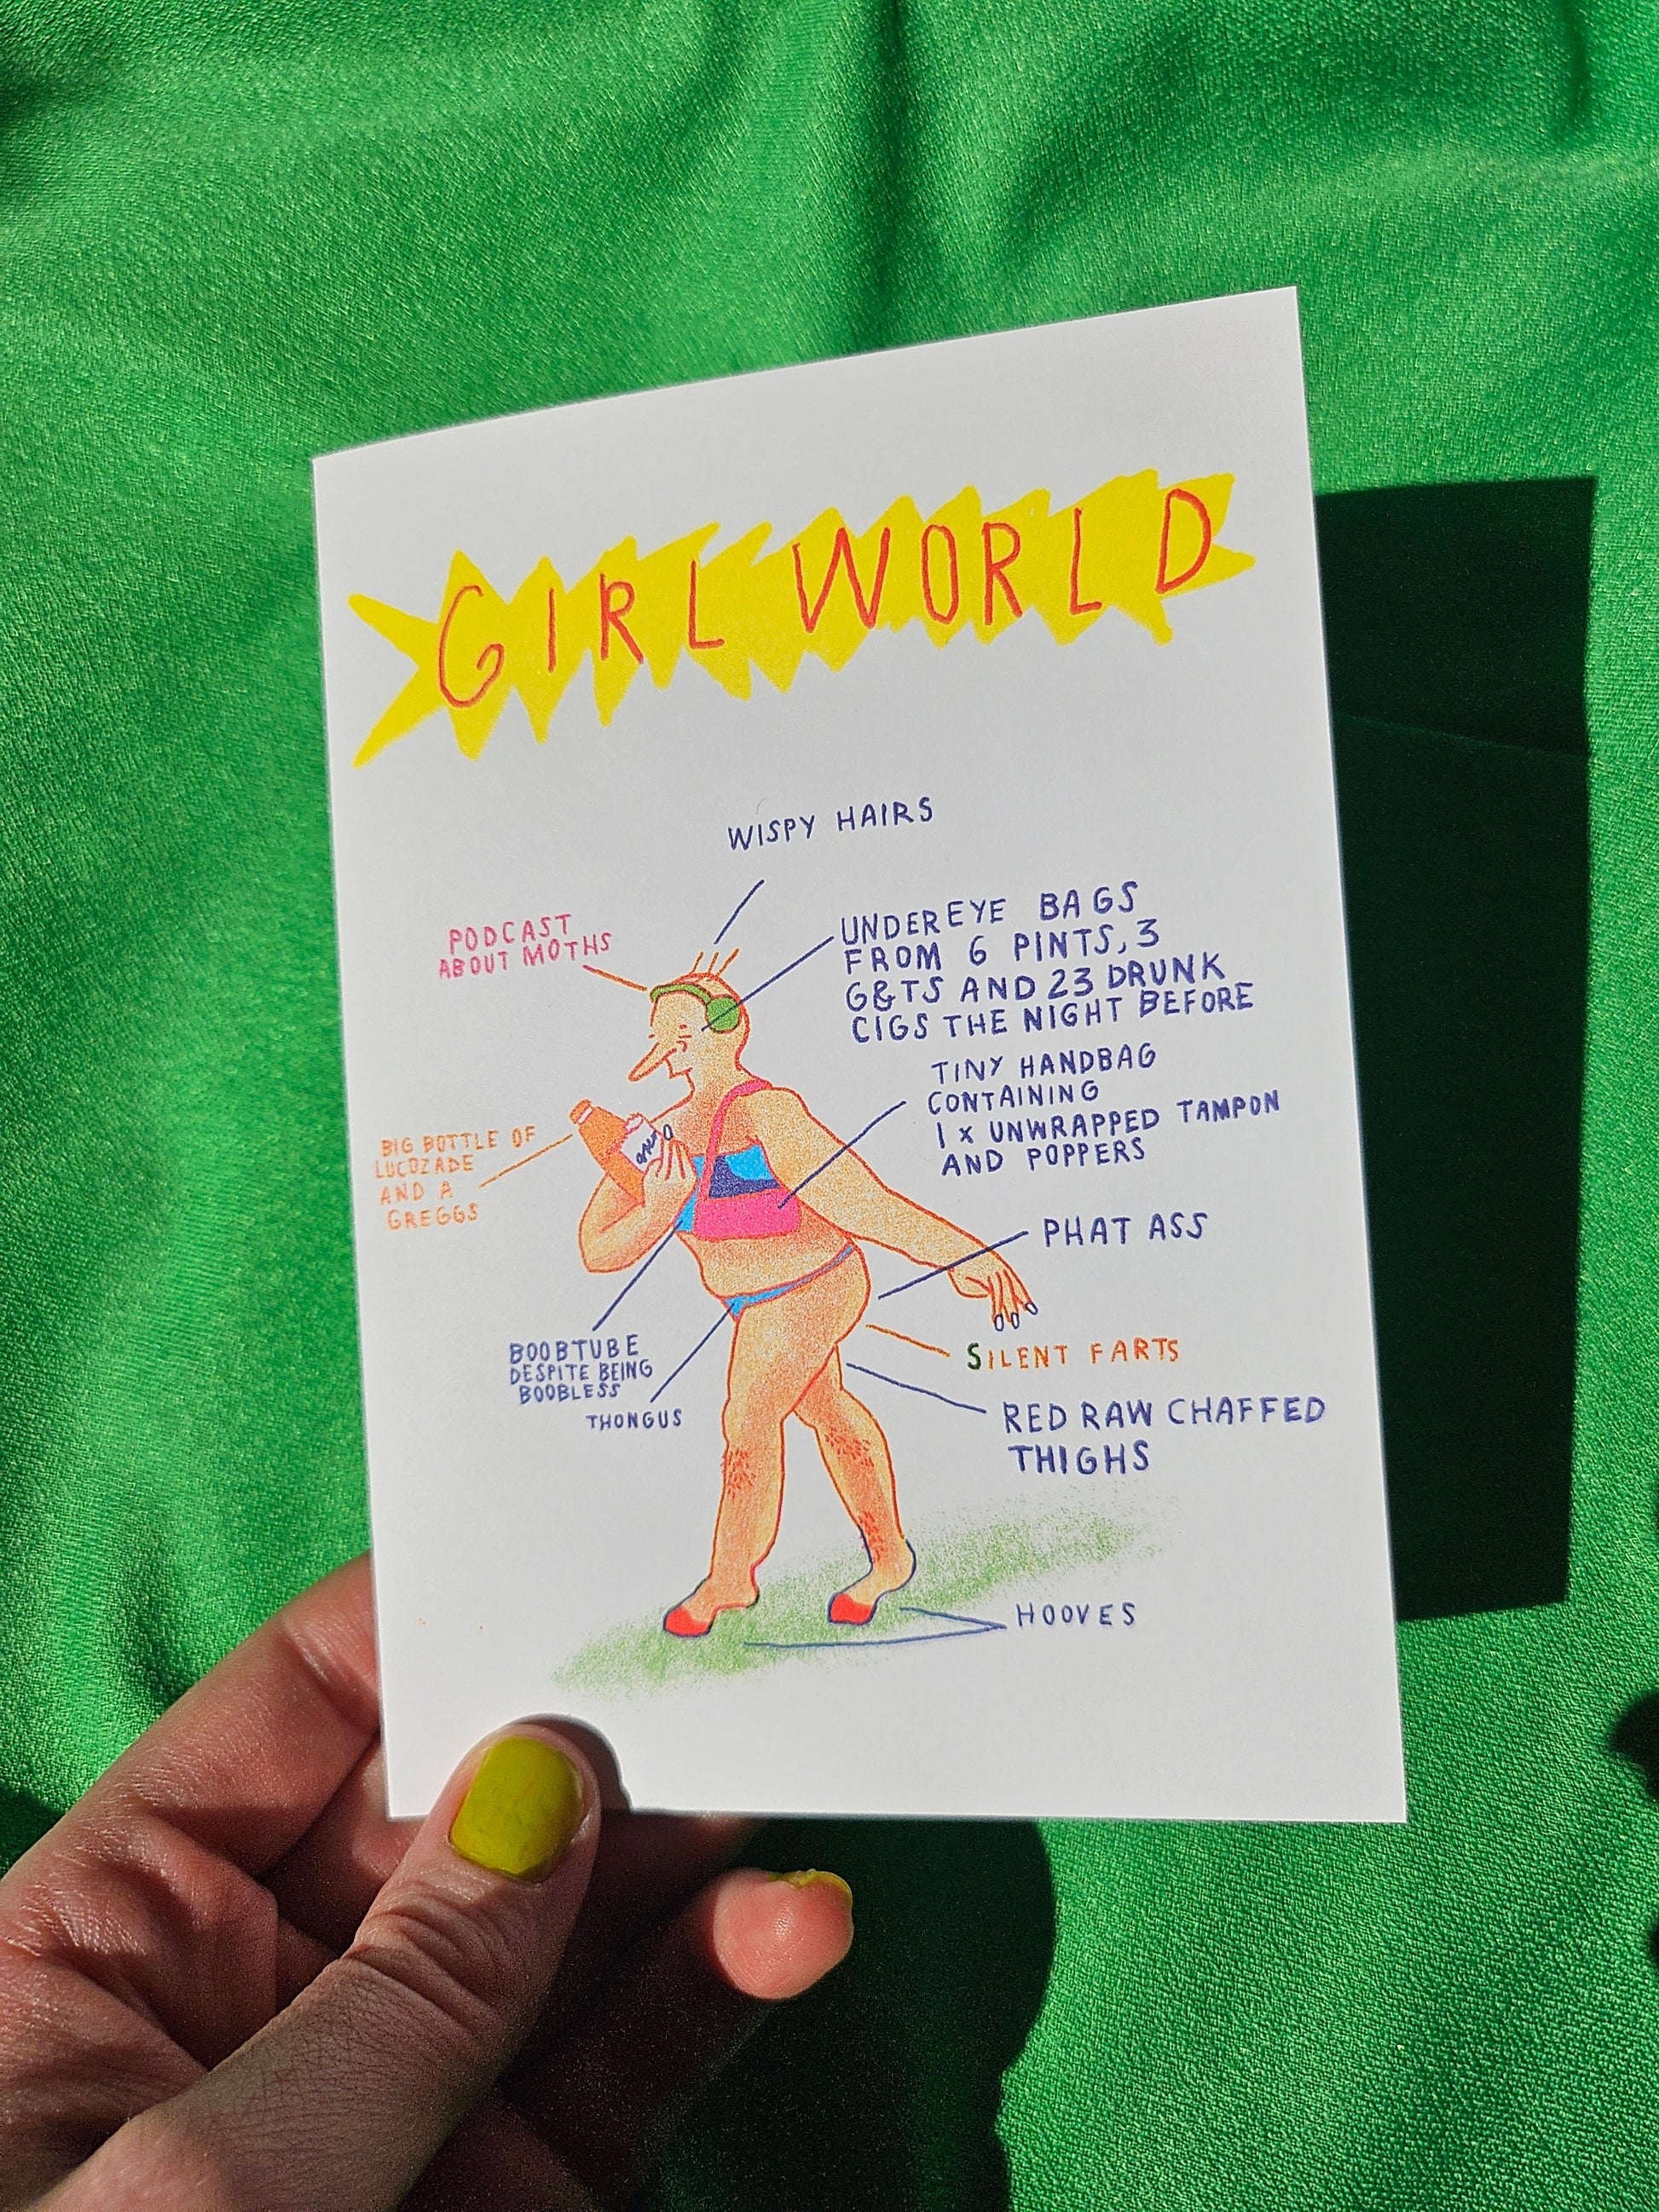 GIRL WORLD
WISPY HAIRS
PODCAST
ABOUT MOTHS
UNDEREYE BAGS
FROM 6 PINTS, 3
G&TS AND 23 DRUNK
CIGS THE NIGHT BEFORE
TINY HANDBAG
CONTAINING
1 x UNWRAPPED TAMPON
AND POPPERS
BIG BOTTLE OF
LUCOZADE
AND A
GREGGS
PHAT ASS
BOOBTUBE
DESPITE BEING
BOOBLESS
THONGUS
SILENT FARTS
RED RAW CHAFFED
THIGHS
HOOVES